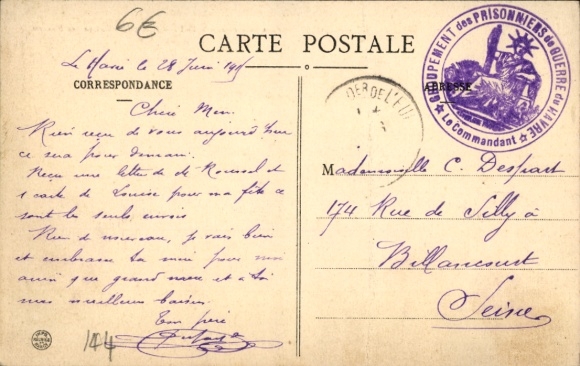 6€
CARTE POSTALE
Le Havre le 28 Juin 191
CORRESPONDANCE
ADRESSE
GROUPEMENT des PRISONNIERS de GUERRE du HAVRE
Le Commandant
Rien reçu de vous aujourd'hui
ce sera pour demain.
Reçu une lettre de de Roussel et
1 carte de Louise pour ma fête ce
sont les seuls envois
Rien de nouveau, je vais bien
et embrasse ta mère pour moi
ainsi que grand mère et à toi
mes meilleurs baisers.
Ton père
144
Mademoiselle C. Despart
174 Rue de Silly à
Billancourt
Seine